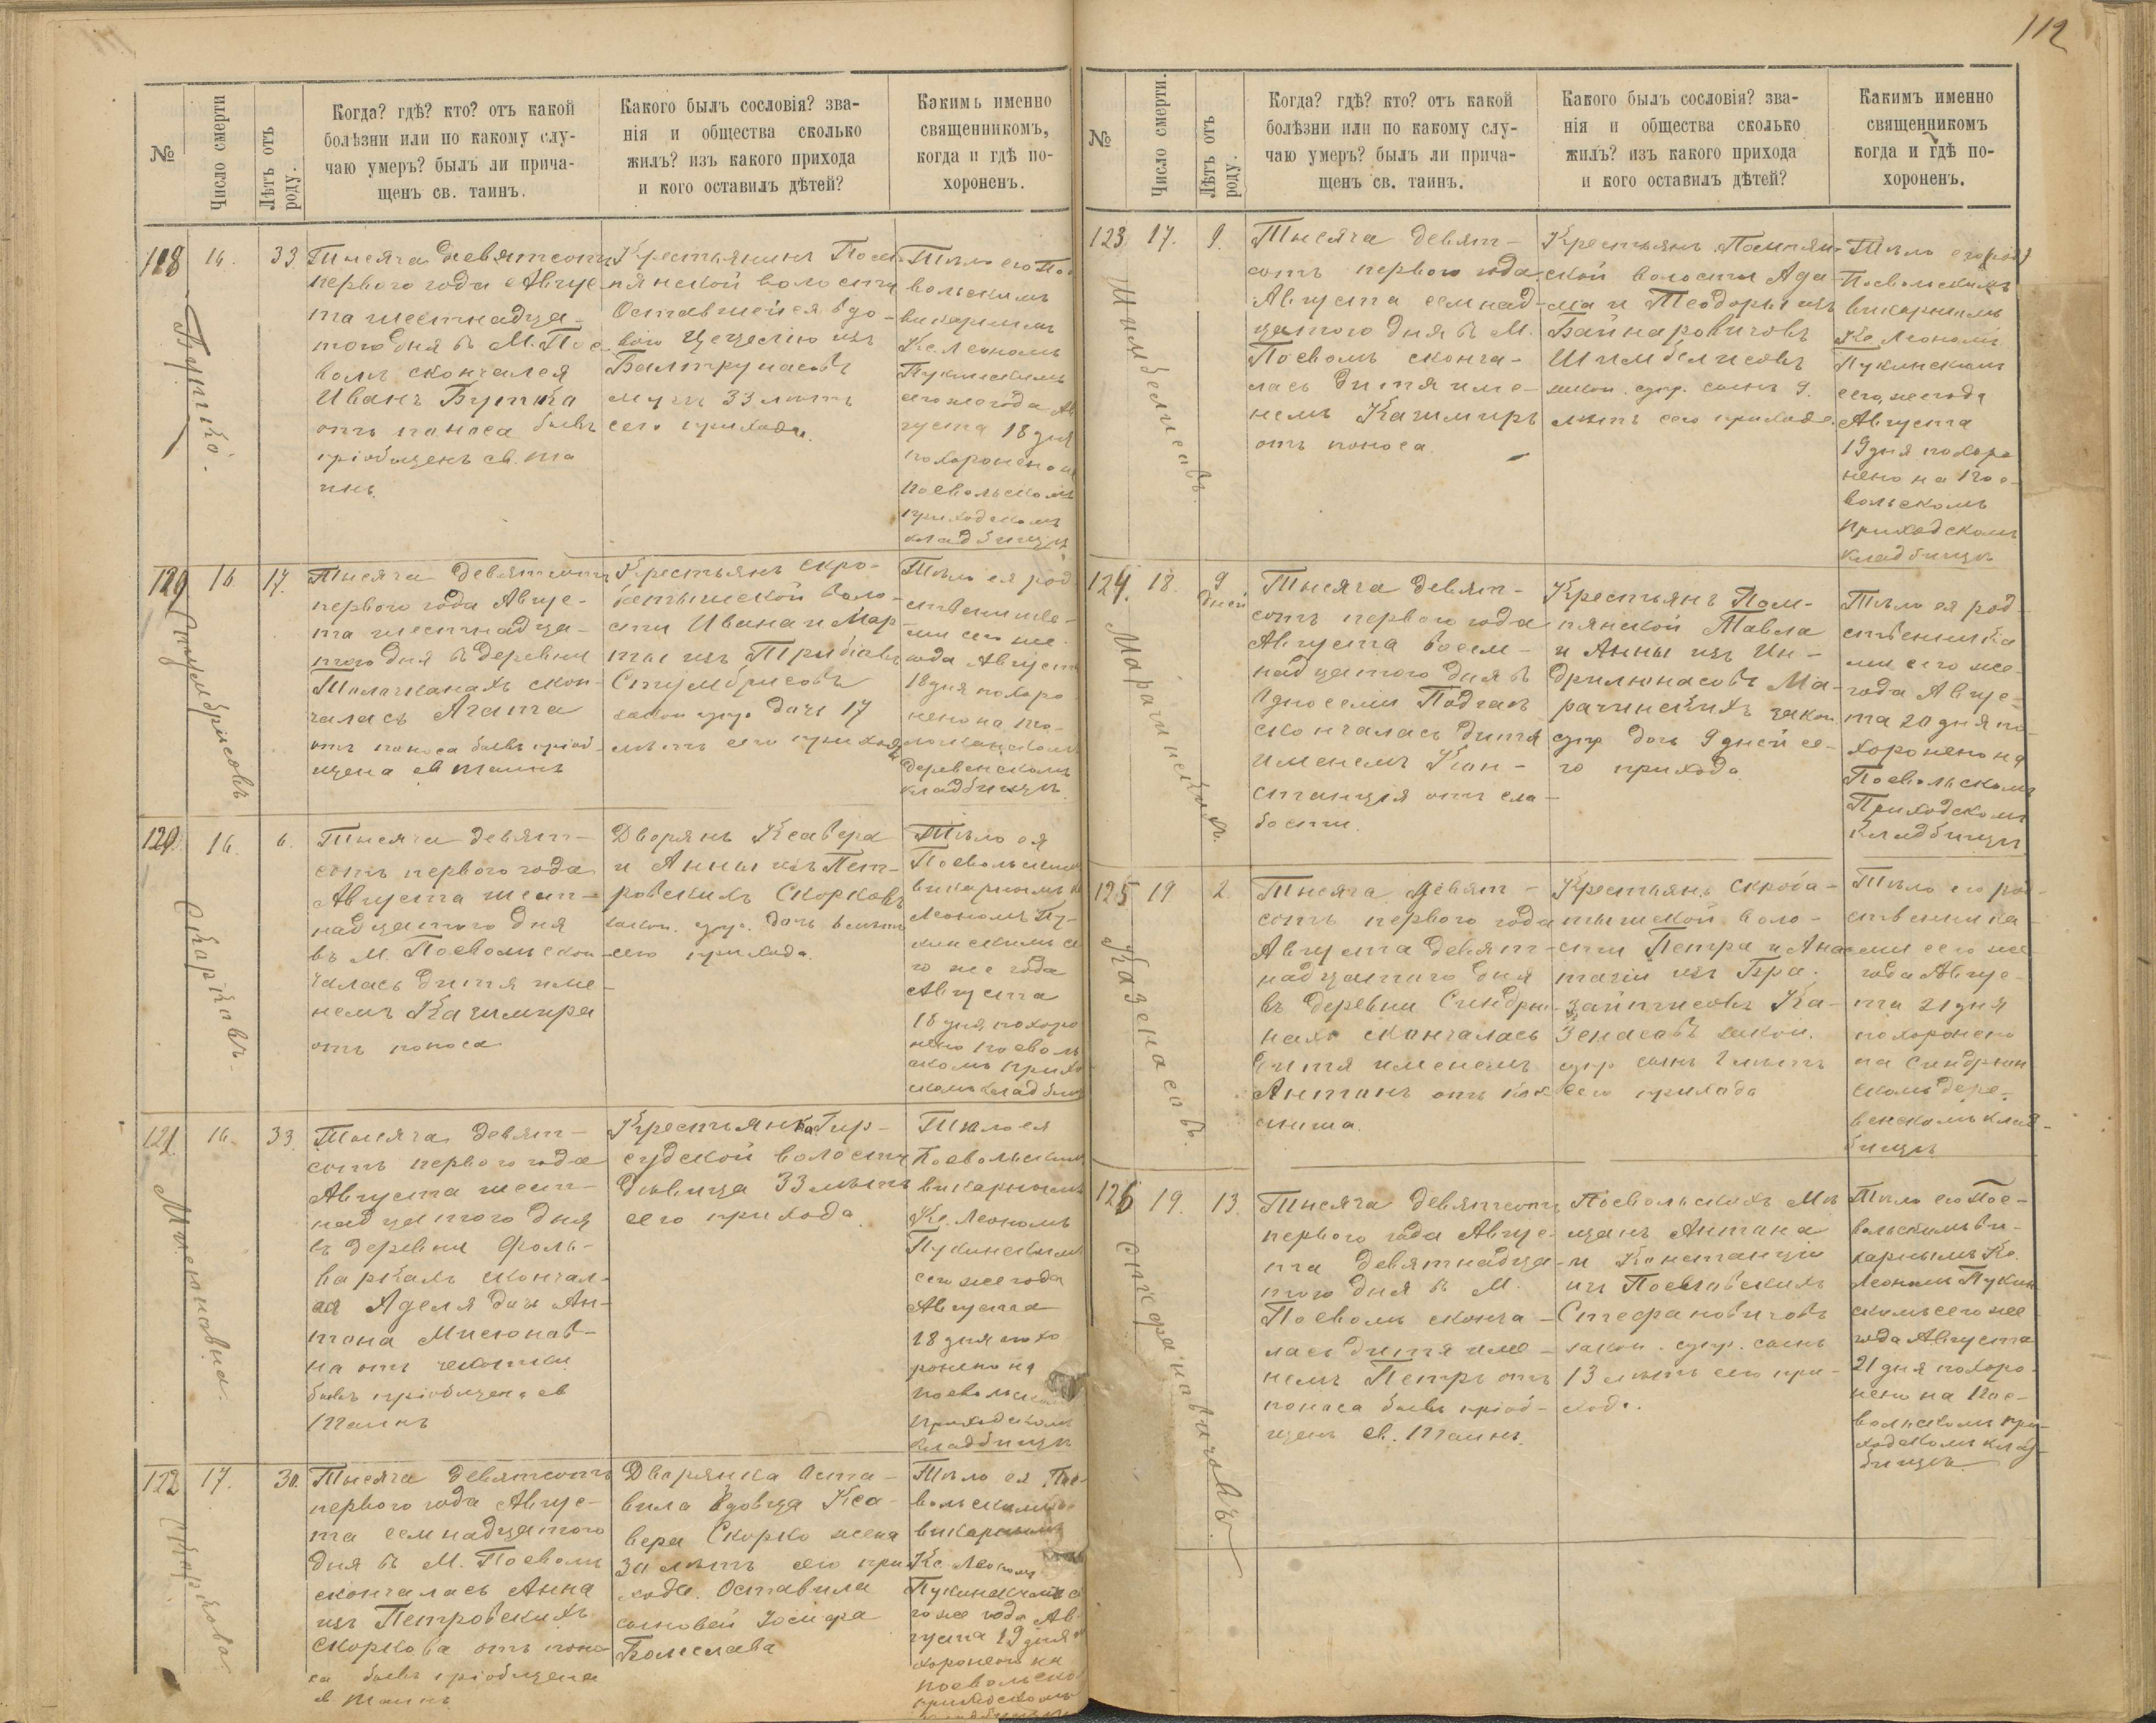 112
№
Число смерти
Лѣтъ отъ роду.
Когда? гдѣ? кто? отъ какой
болѣзни или по какому слу-
чаю умеръ? былъ ли прича-
щенъ св. таинъ.
Какого былъ сословія? зва-
нія и общества сколько
жилъ? изъ какого прихода
и кого оставилъ дѣтей?
Какимъ именно
священникомъ,
когда и гдѣ по-
хороненъ.
118
16.
33
Бутко.
Тысяча девятсотъ
первого года Авгус
та шестнадца-
того дня въ М. Пос
волѣ скончался
Иванъ Бутко
отъ поноса бывъ
пріобщенъ св. та
инъ.
Крестьянинъ Пом
пянской волости
Оставшейся вдо-
вою Цецелію изъ
Балтрунасовъ
мужъ 33 лѣтъ
сего прихода.
Тѣло его По
вольскимъ
викарнымъ
Кс. Леономъ
Пукинскимъ
сего же года Ав
густа 18 дня
похоронено на
Посвольскомъ
приходскомъ
кладбищѣ
16
17.
Стумбрисовъ
Тысяча девятсотъ
первого года Авгус-
та шестнадца-
того дня въ деревни
скон-
чалась Агата
отъ поноса бывъ пріоб-
щена св Таинъ
Крестьянъ Скро-
ботышской воло-
сти Ивана и Мар
ты изъ
Стумбрисовъ
закон. супр. дочь 17
лѣтъ сего прихода
Тѣло ея род
ственника-
ми сего же
года Августа
18 дня похоро
нено на
деревенскомъ
кладбищѣ.
120
16.
6.
Скорковъ.
Тысяча девят-
сотъ первого года
Августа шест-
надцатого дня
въ М. Посволѣ скон
чалась дитя име-
немъ Казимира
отъ поноса
Дворянъ Ксавера
и Анны изъ Пет-
ровскихъ Скорковъ
закон. супр. дочь 6 лѣтъ
сего прихода.
Тѣло ея
Посвольскимъ
викарнымъ
Леономъ Пу-
кинскимъ се
го же года
Августа
18 дня похоро
нено Посволь
скомъ прихо
скомъ кладбищ
121
16.
33.
Мисюновна.
Тысяча девят-
сотъ первого года
Августа шест-
надцатого дня
въ деревни Фоль-
варкахъ скончал-
ая Аделя дочь Ан-
тона Мисюнов-
на отъ чахотки
бывъ пріобщена св
Таинъ
Крестьянка Гир-
судской волости
дѣвица 33 лѣтъ
сего прихода
Тѣло ея
Посвольскимъ
викарнымъ
Кс. Леономъ
Пукинскимъ
сего же года
Августа
18 дня похо
ронено на
Посвольск
приходскомъ
кладбищѣ
122
17.
30.
Скоркова.
Тысяча девятсотъ
первого года Авгус-
та семнадцатого
дня въ М. Посволѣ
скончалась Анна
изъ Петровскихъ
Скоркова отъ поно
са бывъ пріобщена
св Таинъ
Дворянка Оста-
вила вдовца Кса-
вера Скорко жена
30 лѣтъ сего при
хода. Оставила
сыновей Іосифа
Болеслава
Тѣло ея Пос-
вольскимъ
викарнымъ
Кс. Леономъ
Пукинскимъ се
го же года Ав-
густа 19 дня
хоронено на
Посвольско
приходскомъ
№
Число смерти.
Лѣтъ отъ роду.
Когда? гдѣ? кто? отъ какой
болѣзни или по какому слу-
чаю умеръ? былъ ли прича-
щенъ св. таин.
Какого былъ сословія? зва-
нія и общества сколько
жилъ? изъ какого прихода
и кого оставилъ дѣтей?
Какимъ именно
священникомъ
когда и гдѣ по-
хороненъ.
123
17.
9.
Шимбелисовъ.
Тысяча девят-
сотъ первого года
Августа семнад-
цатого дня въ М.
Посволѣ сконча-
лась дитя име-
немъ Казимиръ
отъ поноса
Крестьянъ Помпян-
ской волости Ада-
ма и Теодоры изъ
Байнаровичовъ
Шимбелисовъ
закон. супр. сынъ 9.
лѣтъ сего прихода.
Тѣло его
Посвольскимъ
викарнымъ
Кс Леономъ
Пукинскимъ
сего же года
Августа
19 дня похоро
нено на Пос-
вольскомъ
приходскомъ
кладбищѣ
124.
18.
9 дней
Марачинскихъ.
Тысяча девят-
сотъ первого года
Августа восем-
надцатого дня въ
односеліи
скончалась дитя
именемъ Кон-
станція отъ сла-
бости.
Крестьянъ Пом-
пянской Павла
и Анны изъ Ин-
дрилюнасовъ Ма-
рачинскихъ закон
супр дочь 9 дней се-
го прихода
Тѣло ея род
ственника
ми сего же
года Авгус-
та 20 дня по-
хоронено на
Посвольскомъ
Приходскомъ
кладбищѣ
125
19
2.
Казенасовъ.
Тысяча девят-
сотъ первого года
Августа девят-
надцатого дня
въ деревни Синдрю-
нахъ скончалась
дитя именемъ
Антонъ отъ кок
люша.
Крестьянъ Скроба-
тышской воло-
сти Петра и Ана
тазіи изъ Бра-
зайтисовъ Ка-
зенасовъ закон.
супр сынъ 2 лѣтъ
сего прихода
Тѣло его род-
ственника-
ми сего же
года Авгус-
та 21 дня
похоронено
на Синдрюн
скомъ дере-
венскомъ клад-
бищѣ
126
19.
13.
Стефановичовъ.
Тысяча девятсотъ
первого года Авгус-
та девятнадца-
того дня въ М.
Посволѣ сконча-
лась дитя име-
немъ Петръ отъ
поноса бывъ пріоб-
щенъ св. Таинъ.
Посвольскихъ Мѣ
щанъ Антона
и Констанціи
изъ
Стефановичовъ
закон. супр. сынъ
13 лѣтъ сего при-
хода.
Тѣло его Пос-
вольскимъ ви-
карнымъ Кс.
Леономъ Пукин
скимъ сего же
года Августа
21 дня похоро-
нено на Пос-
вольскомъ при-
ходскомъ клад-
бищѣ